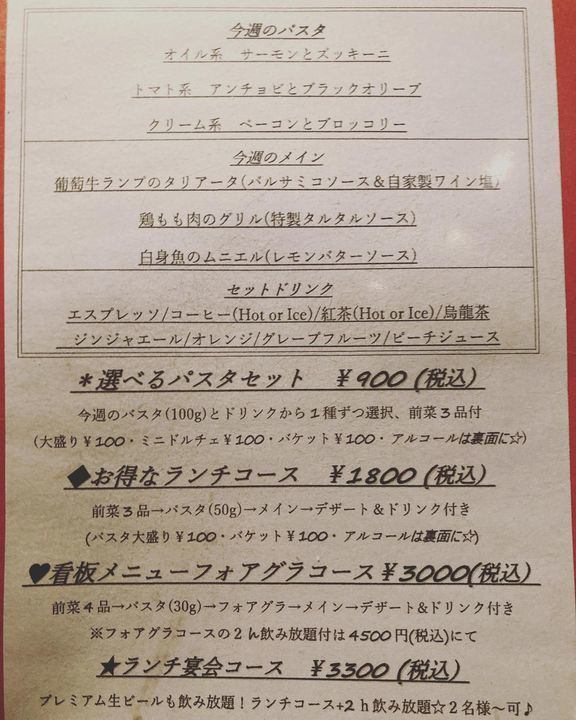 今週のパスタ
オイル系　サーモンとズッキーニ
トマト系　アンチョビとブラックオリーブ
クリーム系　ベーコンとブロッコリー
今週のメイン
葡萄牛ランプのタリアータ(バルサミコソース＆自家製ワイン塩)
鶏もも肉のグリル(特製タルタルソース)
白身魚のムニエル(レモンバターソース)
セットドリンク
エスプレッソ/コーヒー(Hot or Ice)/紅茶(Hot or Ice)/烏龍茶
ジンジャエール/オレンジ/グレープフルーツ/ピーチジュース
＊選べるパスタセット　￥900 (税込)
今週のパスタ(100g)とドリンクから１種ずつ選択、前菜３品付
(大盛り￥100・ミニドルチェ￥100・バケット￥100・アルコールは裏面に☆)
◆お得なランチコース　￥1800 (税込)
前菜３品→パスタ(50g)→メイン→デザート＆ドリンク付き
(パスタ大盛り￥100・バケット￥100・アルコールは裏面に☆)
♥看板メニューフォアグラコース￥3000(税込)
前菜４品→パスタ(30g)→フォアグラ→メイン→デザート&ドリンク付き
※フォアグラコースの２h飲み放題付は4500円(税込)にて
★ランチ宴会コース　￥3300 (税込)
プレミアム生ビールも飲み放題！ランチコース+2ｈ飲み放題☆２名様～可♪